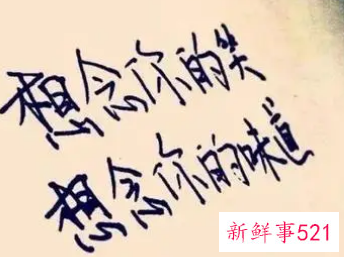 想念你的笑
想念你的味道
新鲜事521